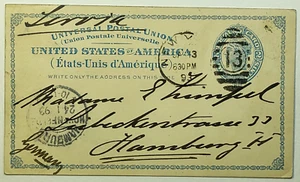 Servia
UNIVERSAL POSTAL UNION
(Union Postale Universelle)
UNITED STATES OF AMERICA.
(États-Unis d'Amérique)
WRITE ONLY THE ADDRESS ON THIS SIDE.
13
630 PM
93
13
Madame E Kimpel
Ifflandstrasse 33
Hamburg
HAMBURG
24 1 93
Germany